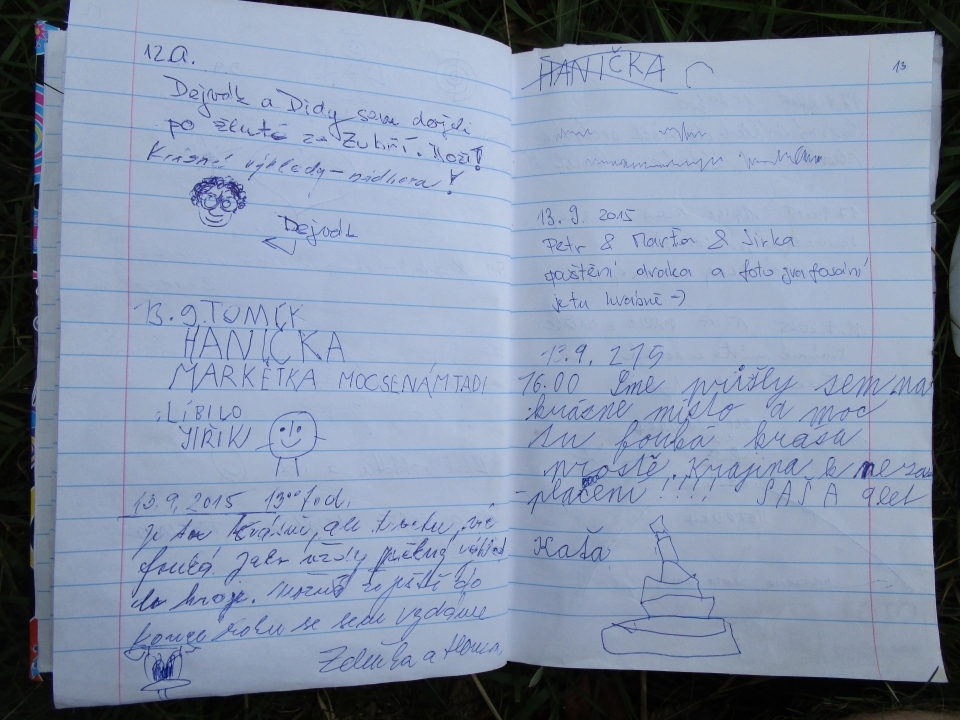 12.a.
Dejvdk a Didy sem došli
po žluté za Zubří. Hoří!
Krásné výhledy - nádhera!
Dejvdk
13. 9. TOMÍK
HANIČKA
MARKĚTKA MOC SE NÁM TADI
LÍBILO
JIŘÍK
13.9.2015 13⁰⁰ hod.
Je tu krásně, ale trochu víc
fouká. Jako vždy pěkný výhled
do kraje. Možná ještě do
konce roku se sem vydáme
Zdeňka a
HANIČKA
13
13. 9. 2015
Petr & Marťa & Jirka
pouštění draka a fotografování
je tu krásně :-)
13.9. 215
16:00 Sme přišly sem na
krásne místo a moc
tu fouká krása
prostě. Krajina k neza
-placení !!!! SAŠA 9let
Kaťa